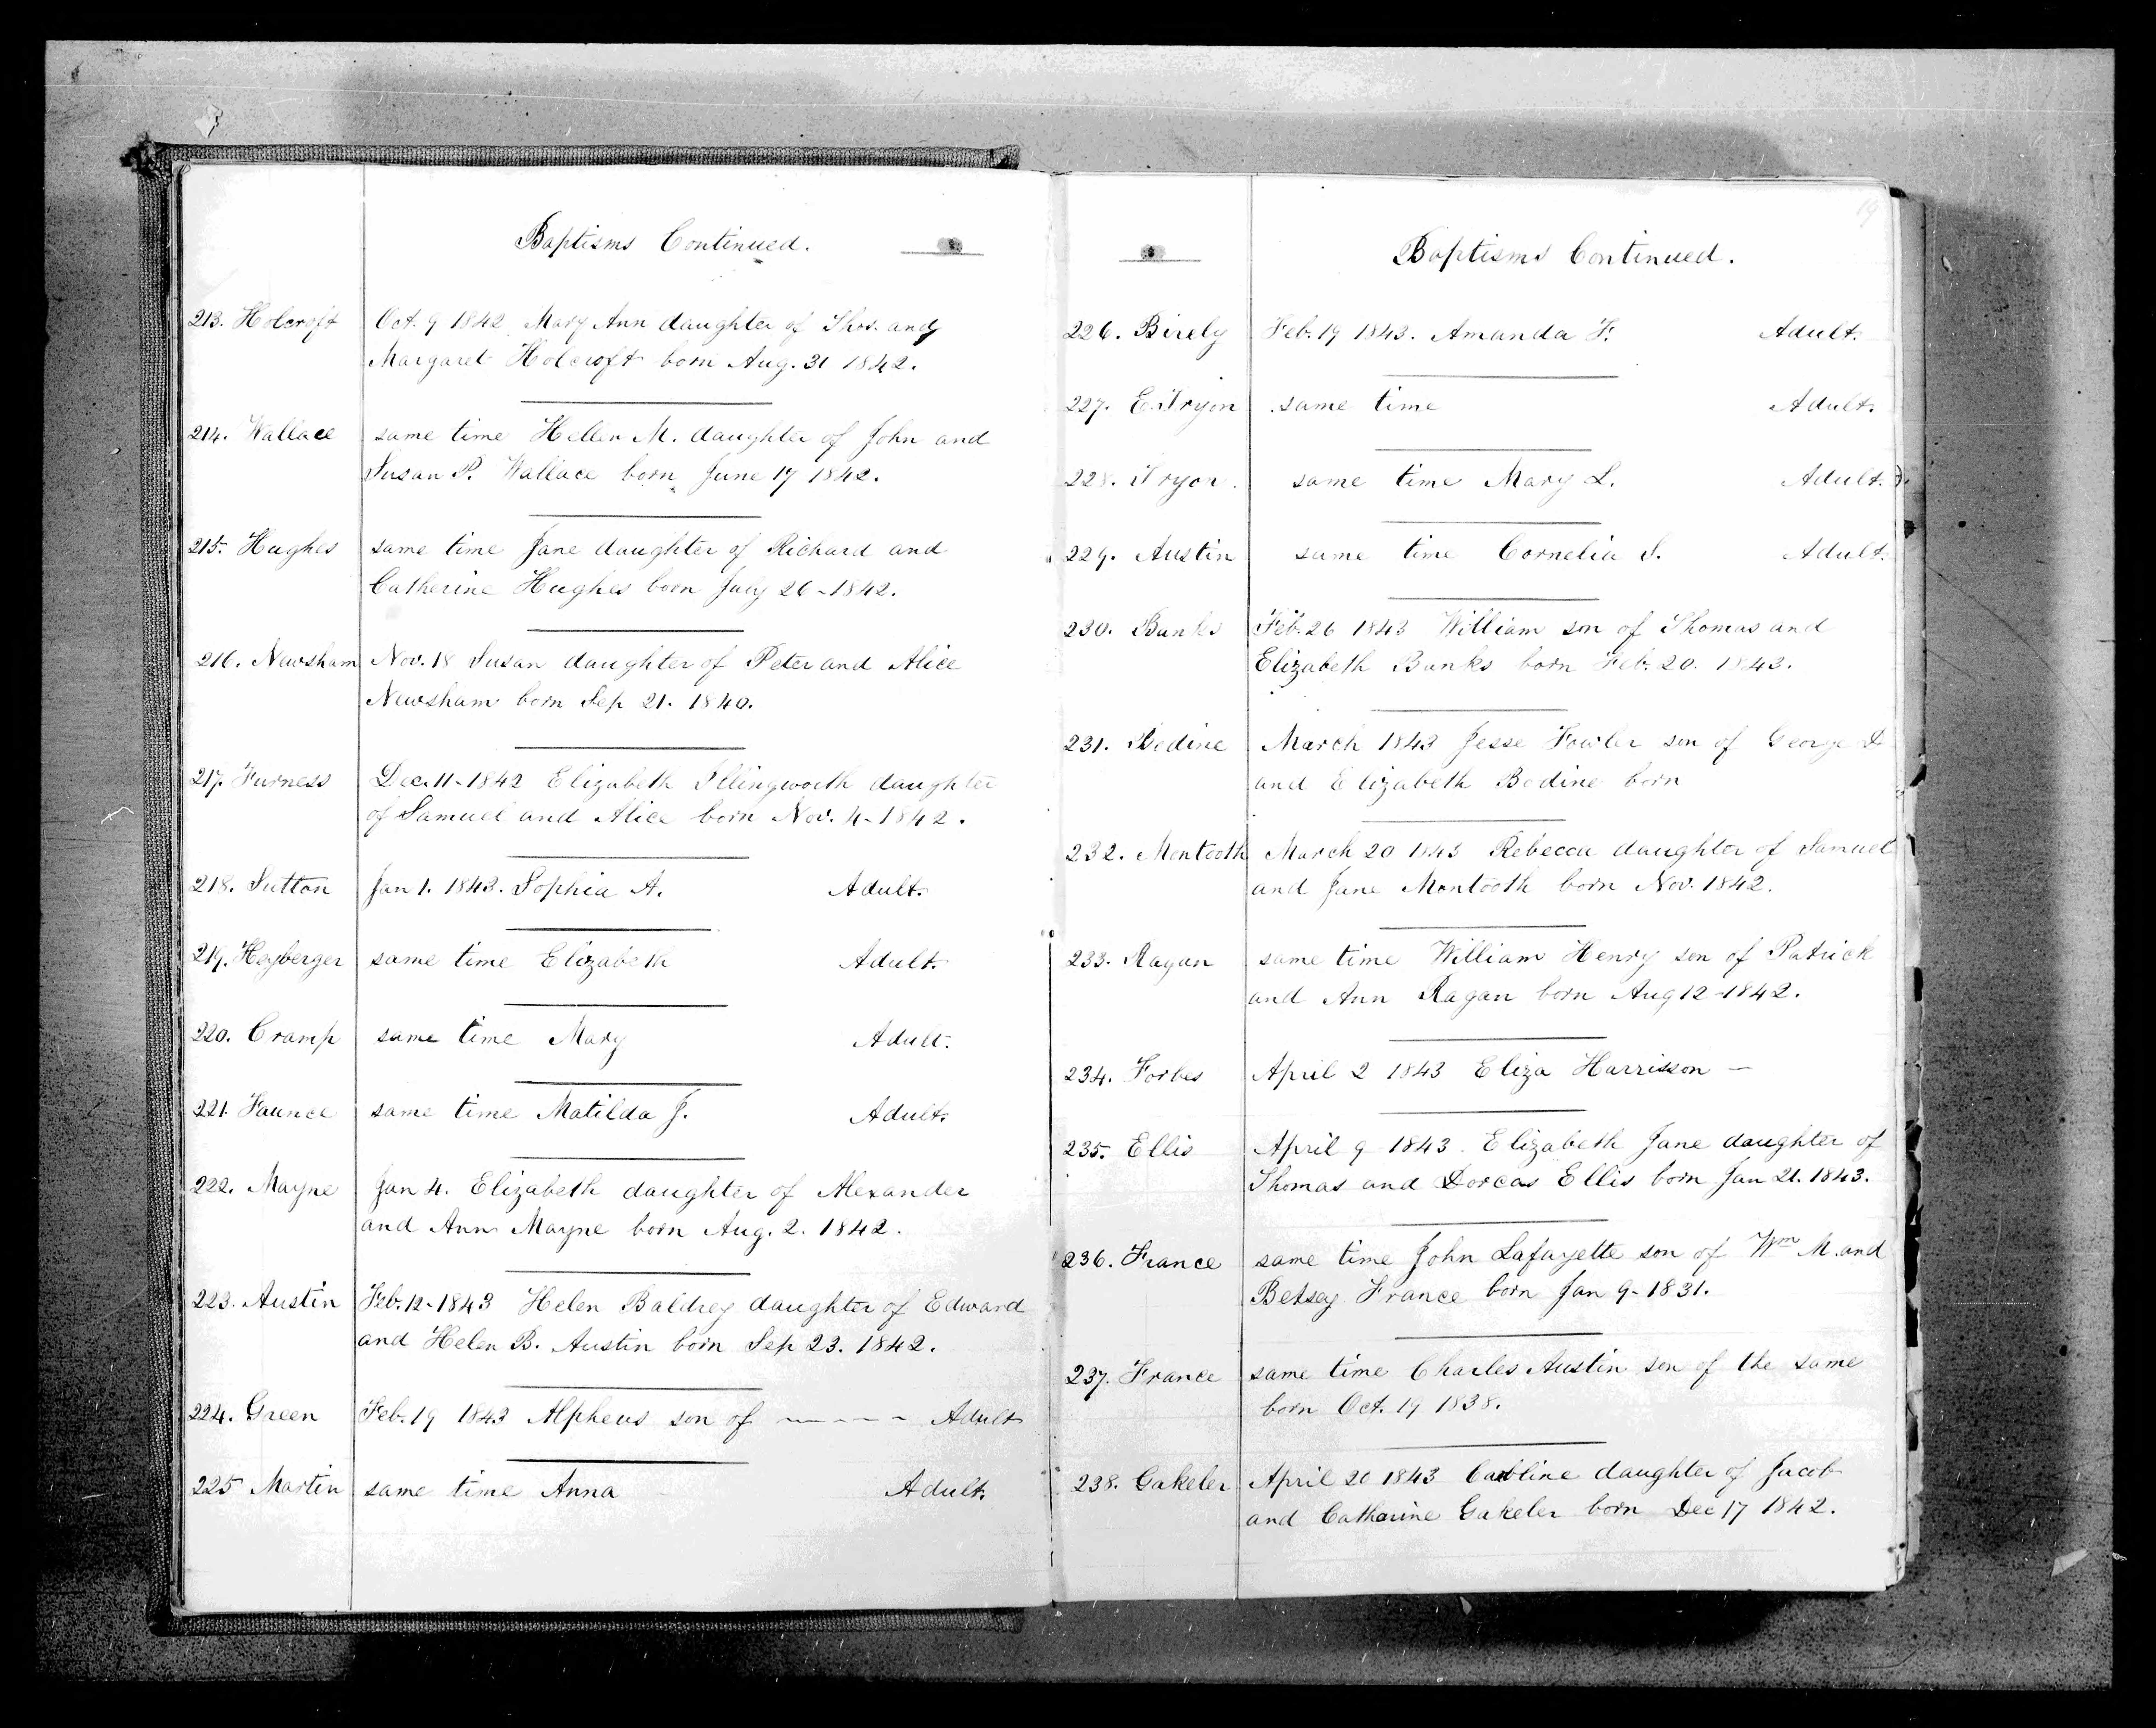 Baptisms Continued.
213. Holcroft Oct. 9 1842 Mary Ann daughter of Thos. and
Margaret Holcroft born Aug. 31 1842.
214. Wallace same time Hellen M. daughter of John and
Susan P. Wallace born June 17 1842.
215. Hughes same time Jane daughter of Richard and
Catherine Hughes born July 26-1842.
216. Newsham Nov. 18 Susan daughter of Peter and Alice
Newsham born Sep 21. 1840.
217. Furness Dec. 11-1842 Elizabeth Illingworth daughter
of Samuel and Alice born Nov. 4-1842.
218. Sutton Jan 1. 1843. Sophia A. Adult.
219. Heyberger same time Elizabeth Adult.
220. Cramp same time Mary Adult.
221. Faunce same time Matilda J. Adult.
222. Mayne Jan 4. Elizabeth daughter of Alexander
and Ann Mayne born Aug. 2. 1842.
223. Austin Feb. 12-1843 Helen Baldrey daughter of Edward
and Helen B. Austin born Sep 23. 1842.
224. Green Feb. 19 1843 Alpheus son of - - - - Adult
225 Martin same time Anna Adult.
19
Baptisms Continued.
226. Birely Feb. 19 1843. Amanda F. Adult.
227. E. Tryon same time Adult.
228. Tryon. same time Mary L. Adult.
229. Austin same time Cornelia S. Adult.
230. Banks Feb. 26 1843 William son of Thomas and
Elizabeth Banks born Feb. 20. 1843.
231. Bodine March 1843 Jesse Fowler son of George &
and Elizabeth Bodine born
232. Montooth March 20 1843 Rebecca daughter of Samuel
and Jane Montooth born Nov. 1842.
233. Ragan same time William Henry son of Patrick
and Ann Ragan born Aug 12-1842.
234. Forbes April 2 1843 Eliza Harrisson —
235. Ellis April 9 1843. Elizabeth Jane daughter of
Thomas and Dorcas Ellis born Jan 21. 1843.
236. France same time John Lafayette son of Wm M. and
Betsey France born Jan 9-1831.
237. France same time Charles Austin son of the same
born Oct. 19 1838.
238. Gakeler April 20 1843 Caroline daughter of Jacob
and Catharine Gakeler born Dec 17 1842.